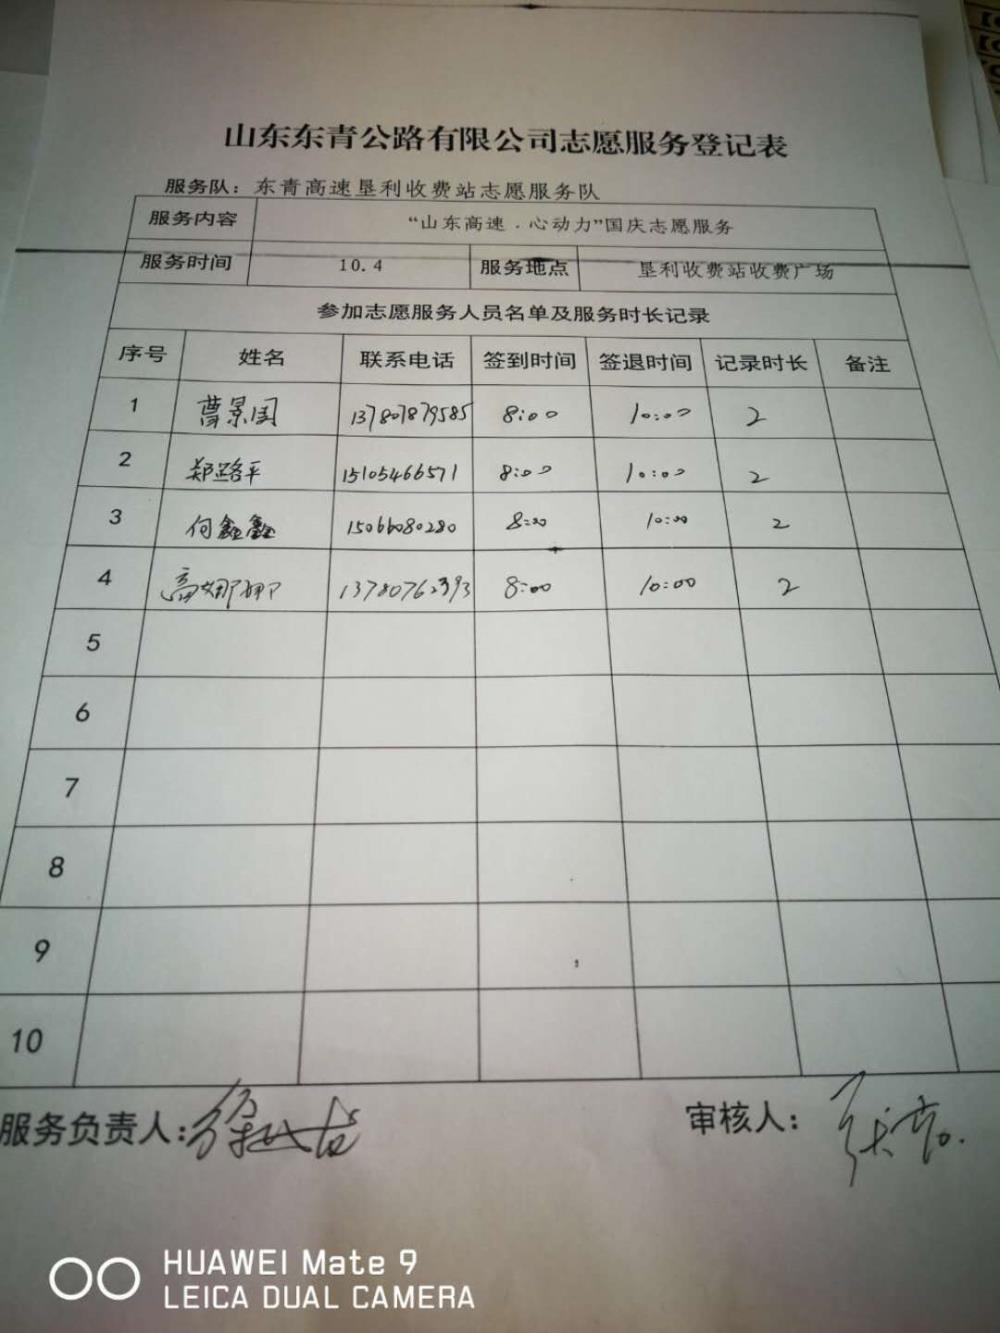 山东东青公路有限公司志愿服务登记表
服务队：东青高速垦利收费站志愿服务队
服务内容 “山东高速．心动力”国庆志愿服务
服务时间 10.4 服务地点 垦利收费站收费广场
参加志愿服务人员名单及服务时长记录
序号 姓名 联系电话 签到时间 签退时间 记录时长 备注
1 曹景国 13780787958 8:00 10:00 2
2 郑路平 15105466571 8:00 10:00 2
3 何鑫鑫 15066080280 8:00 10:00 2
4 高娜娜 13780762393 8:00 10:00 2
5
6
7
8
9
10
服务负责人： 审核人：
HUAWEI Mate 9
LEICA DUAL CAMERA